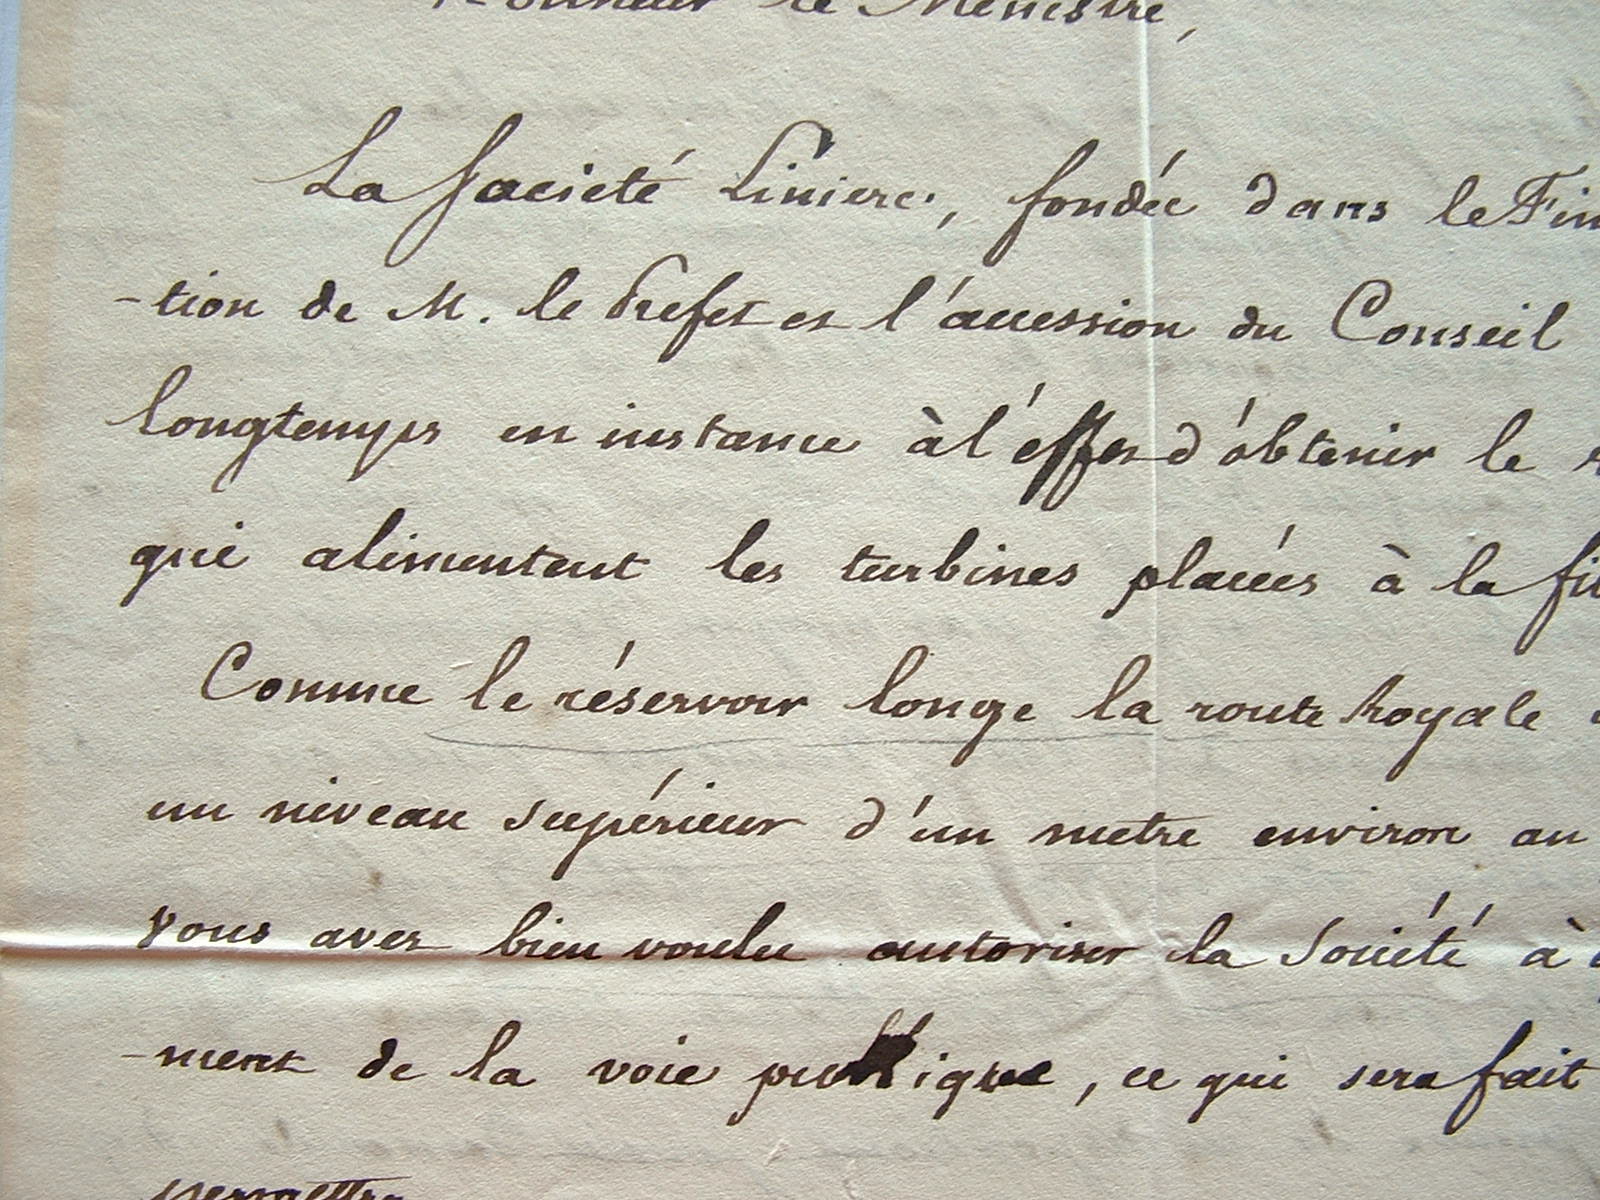 Monsieur le Ministre,
La Société Liniere, fondée dans le Fin
-tion de M. le Préfet et l'accession du Conseil
longtemps en instance à l'effet d'obtenir le
qui alimentent les turbines placées à la fil
Comme le réservoir longe la route Royale
un niveau supérieur d'un metre environ au
vous avez bien voulu autoriser la Société à
-ment de la voie publique, ce qui sera fait
permettre